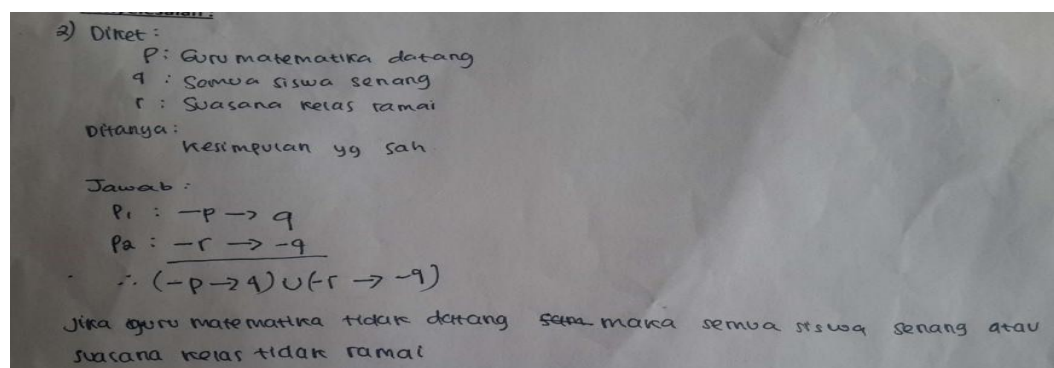 2) Diket :
P : Guru matematika datang
q : Semua siswa senang
r : Suasana kelas ramai
Ditanya :
Kesimpulan yg sah
Jawab :
P₁ : -p → q
P₂ : -r → -q
∴ (-p → q) ∪ (-r → -q)
Jika guru matematika tidak datang maka semua siswa senang atau
suasana kelas tidak ramai